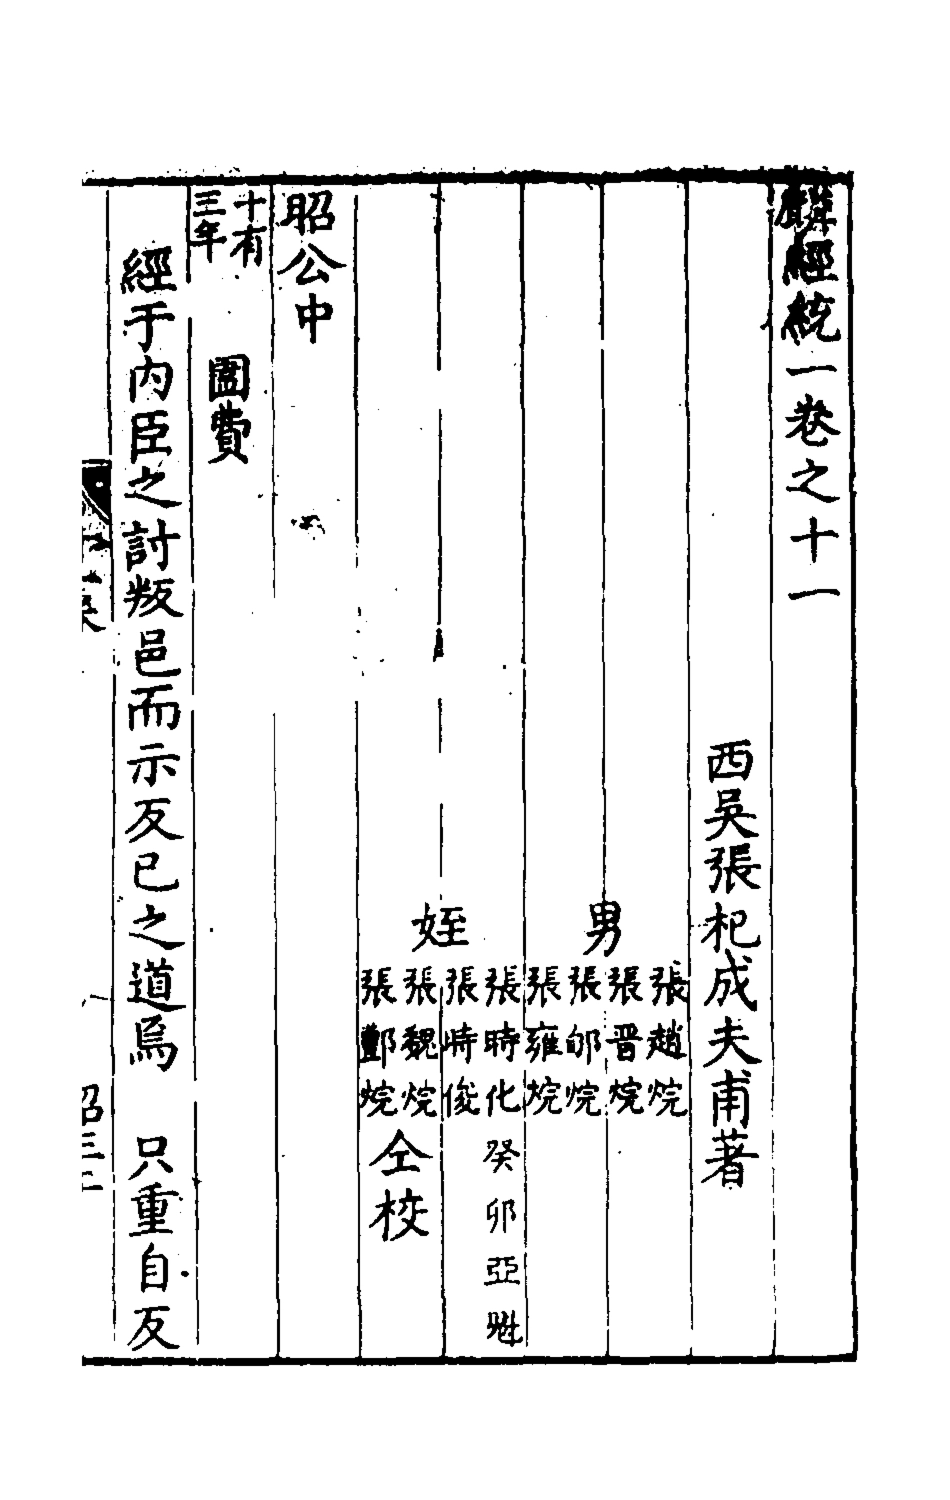 麟經統一卷之十一
西吳張杞成夫甫著
男
張趙烷
張晋烷
張邯烷
張雍烷
姪
張時化 癸卯亞魁
張時俊
張魏烷
張酆烷
仝校
昭公中
十有三年 圍費
經于內臣之討叛邑而示反已之道焉 只重自反